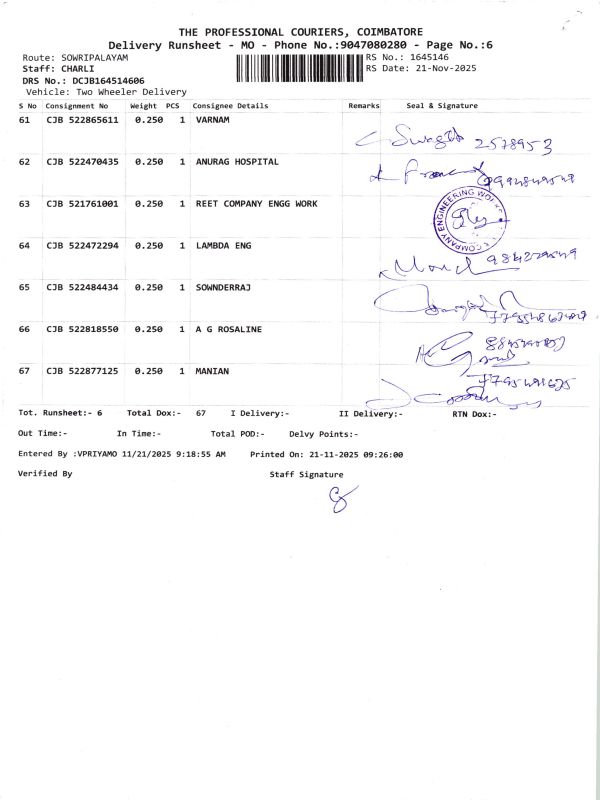 THE PROFESSIONAL COURIERS, COIMBATORE
Delivery Runsheet - MO - Phone No.:9047080280 - Page No.:6
Route: SOWRIPALAYAM RS No.: 1645146
Staff: CHARLI RS Date: 21-Nov-2025
DRS No.: DCJB164514606
Vehicle: Two Wheeler Delivery
S No Consignment No Weight PCS Consignee Details Remarks Seal & Signature
61 CJB 522865611 0.250 1 VARNAM
2578953
62 CJB 522470435 0.250 1 ANURAG HOSPITAL
63 CJB 521761001 0.250 1 REET COMPANY ENGG WORK
COMPANY ENGINEERING WORKS
64 CJB 522472294 0.250 1 LAMBDA ENG
65 CJB 522484434 0.250 1 SOWNDERRAJ
66 CJB 522818550 0.250 1 A G ROSALINE
67 CJB 522877125 0.250 1 MANIAN
Tot. Runsheet:- 6 Total Dox:- 67 I Delivery:- II Delivery:- RTN Dox:-
Out Time:- In Time:- Total POD:- Delvy Points:-
Entered By :VPRIYAMO 11/21/2025 9:18:55 AM Printed On: 21-11-2025 09:26:00
Verified By Staff Signature